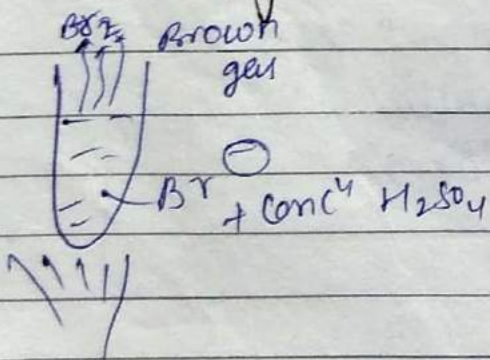 Br2 Brown
gas
Br⊖ + Conc^n H2SO4